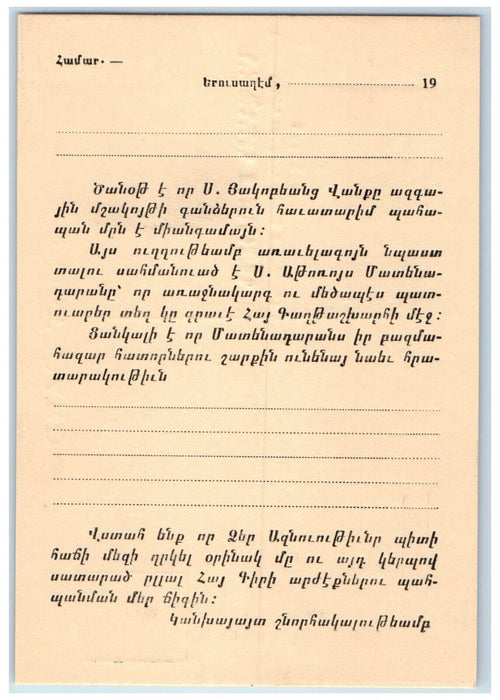 Համար. —
Երուսաղէմ, 19
Ծանօթ է որ Ս. Յակոբեանց Վանքը ազգա-
յին մշակոյթի գանձերուն հաւատարիմ պահա-
պան մըն է միանգամայն:
Այս ուղղութեամբ առաւելագոյն նպաստ
տալու սահմանուած է Ս. Աթոռոյս Մատենա-
դարանը՝ որ առաջնակարգ ու մեծապէս պատ-
ուաբեր տեղ կը գրաւէ Հայ Գաղթաշխարհի մէջ:
Ցանկալի է որ Մատենադարանս իր բազմա-
հազար հատորներու շարքին ունենայ նաեւ հրա-
տարակութիւն
Վստահ ենք որ Ձեր Ազնուութիւնը պիտի
հաճի մեզի ղրկել օրինակ մը ու այդ կերպով
սատարած ըլլալ Հայ Գիրի արժէքներու պահ-
պանման մեր ճիգին:
Կանխայայտ շնորհակալութեամբ